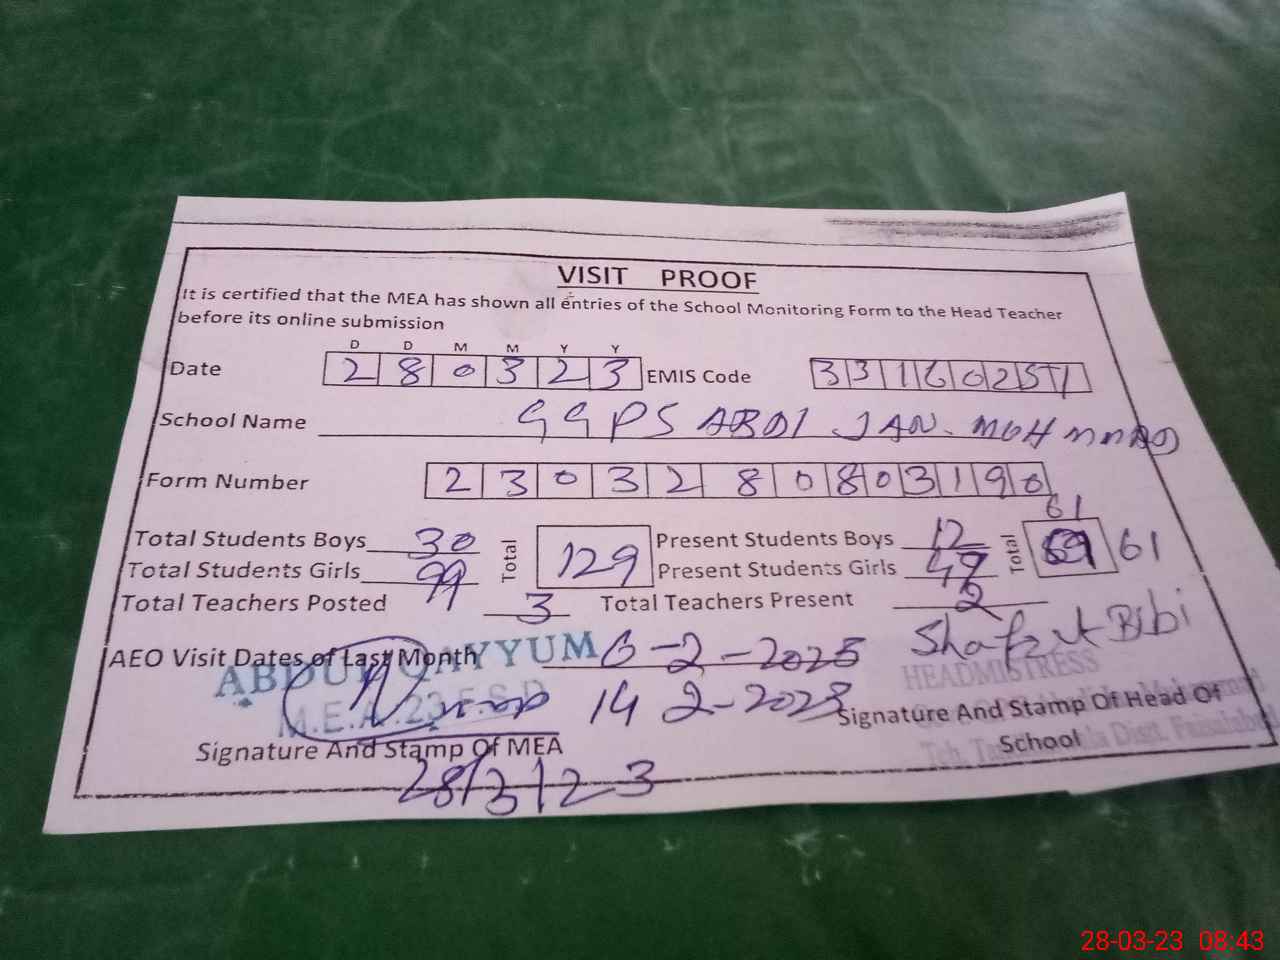 VISIT PROOF
It is certified that the MEA has shown all entries of the School Monitoring Form to the Head Teacher
before its online submission
D D M M Y Y
Date 2 8 0 3 2 3 EMIS Code 3 3 1 6 0 2 5 1
School Name GGPS ABDI JAN. MOHMMAD
Form Number 2 3 0 3 2 8 0 8 0 3 1 9 0
61
Total Students Boys 30 Total 129 Present Students Boys 12 Total 69 61
Total Students Girls 99 Present Students Girls 49
Total Teachers Posted 3 Total Teachers Present 2
AEO Visit Dates of Last Month 6-2-2023 Shafqut Bibi
ABDUL QAYYUM HEADMISTRESS
M.E.A. 23 F.S.D 14 2-2023 Signature And Stamp Of Head Of
Signature And Stamp Of MEA School
28/3/23
28-03-23 08:43